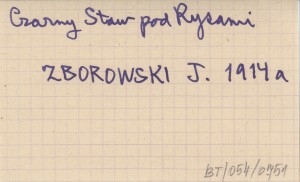 Czarny Staw pod Rysami
ZBOROWSKI J. 1914a
BT/054/0751